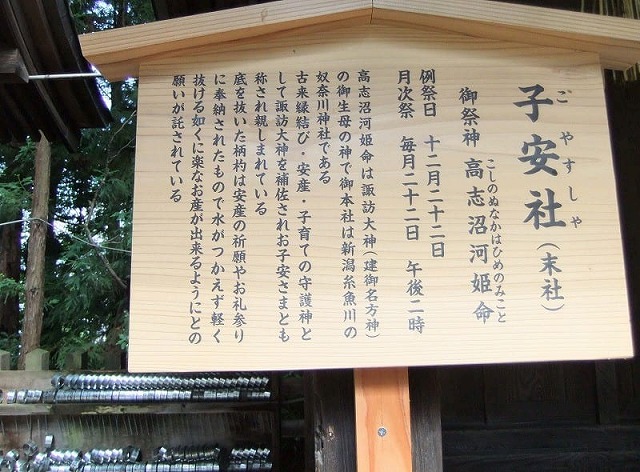 子安社（末社）
ごやすしゃ
御祭神 高志沼河姫命
こしのぬなかはひめのみこと
例祭日 十二月二十二日
月次祭 毎月二十二日 午後二時
高志沼河姫命は諏訪大神（建御名方神）
の御生母の神で御本社は新潟糸魚川の
奴奈川神社である
古来縁結び・安産・子育ての守護神と
して諏訪大神を補佐されお子安さまとも
称され親しまれている
底を抜いた柄杓は安産の祈願やお礼参り
に奉納されたもので水がつかえず軽く
抜ける如くに楽なお産が出来るようにとの
願いが託されている